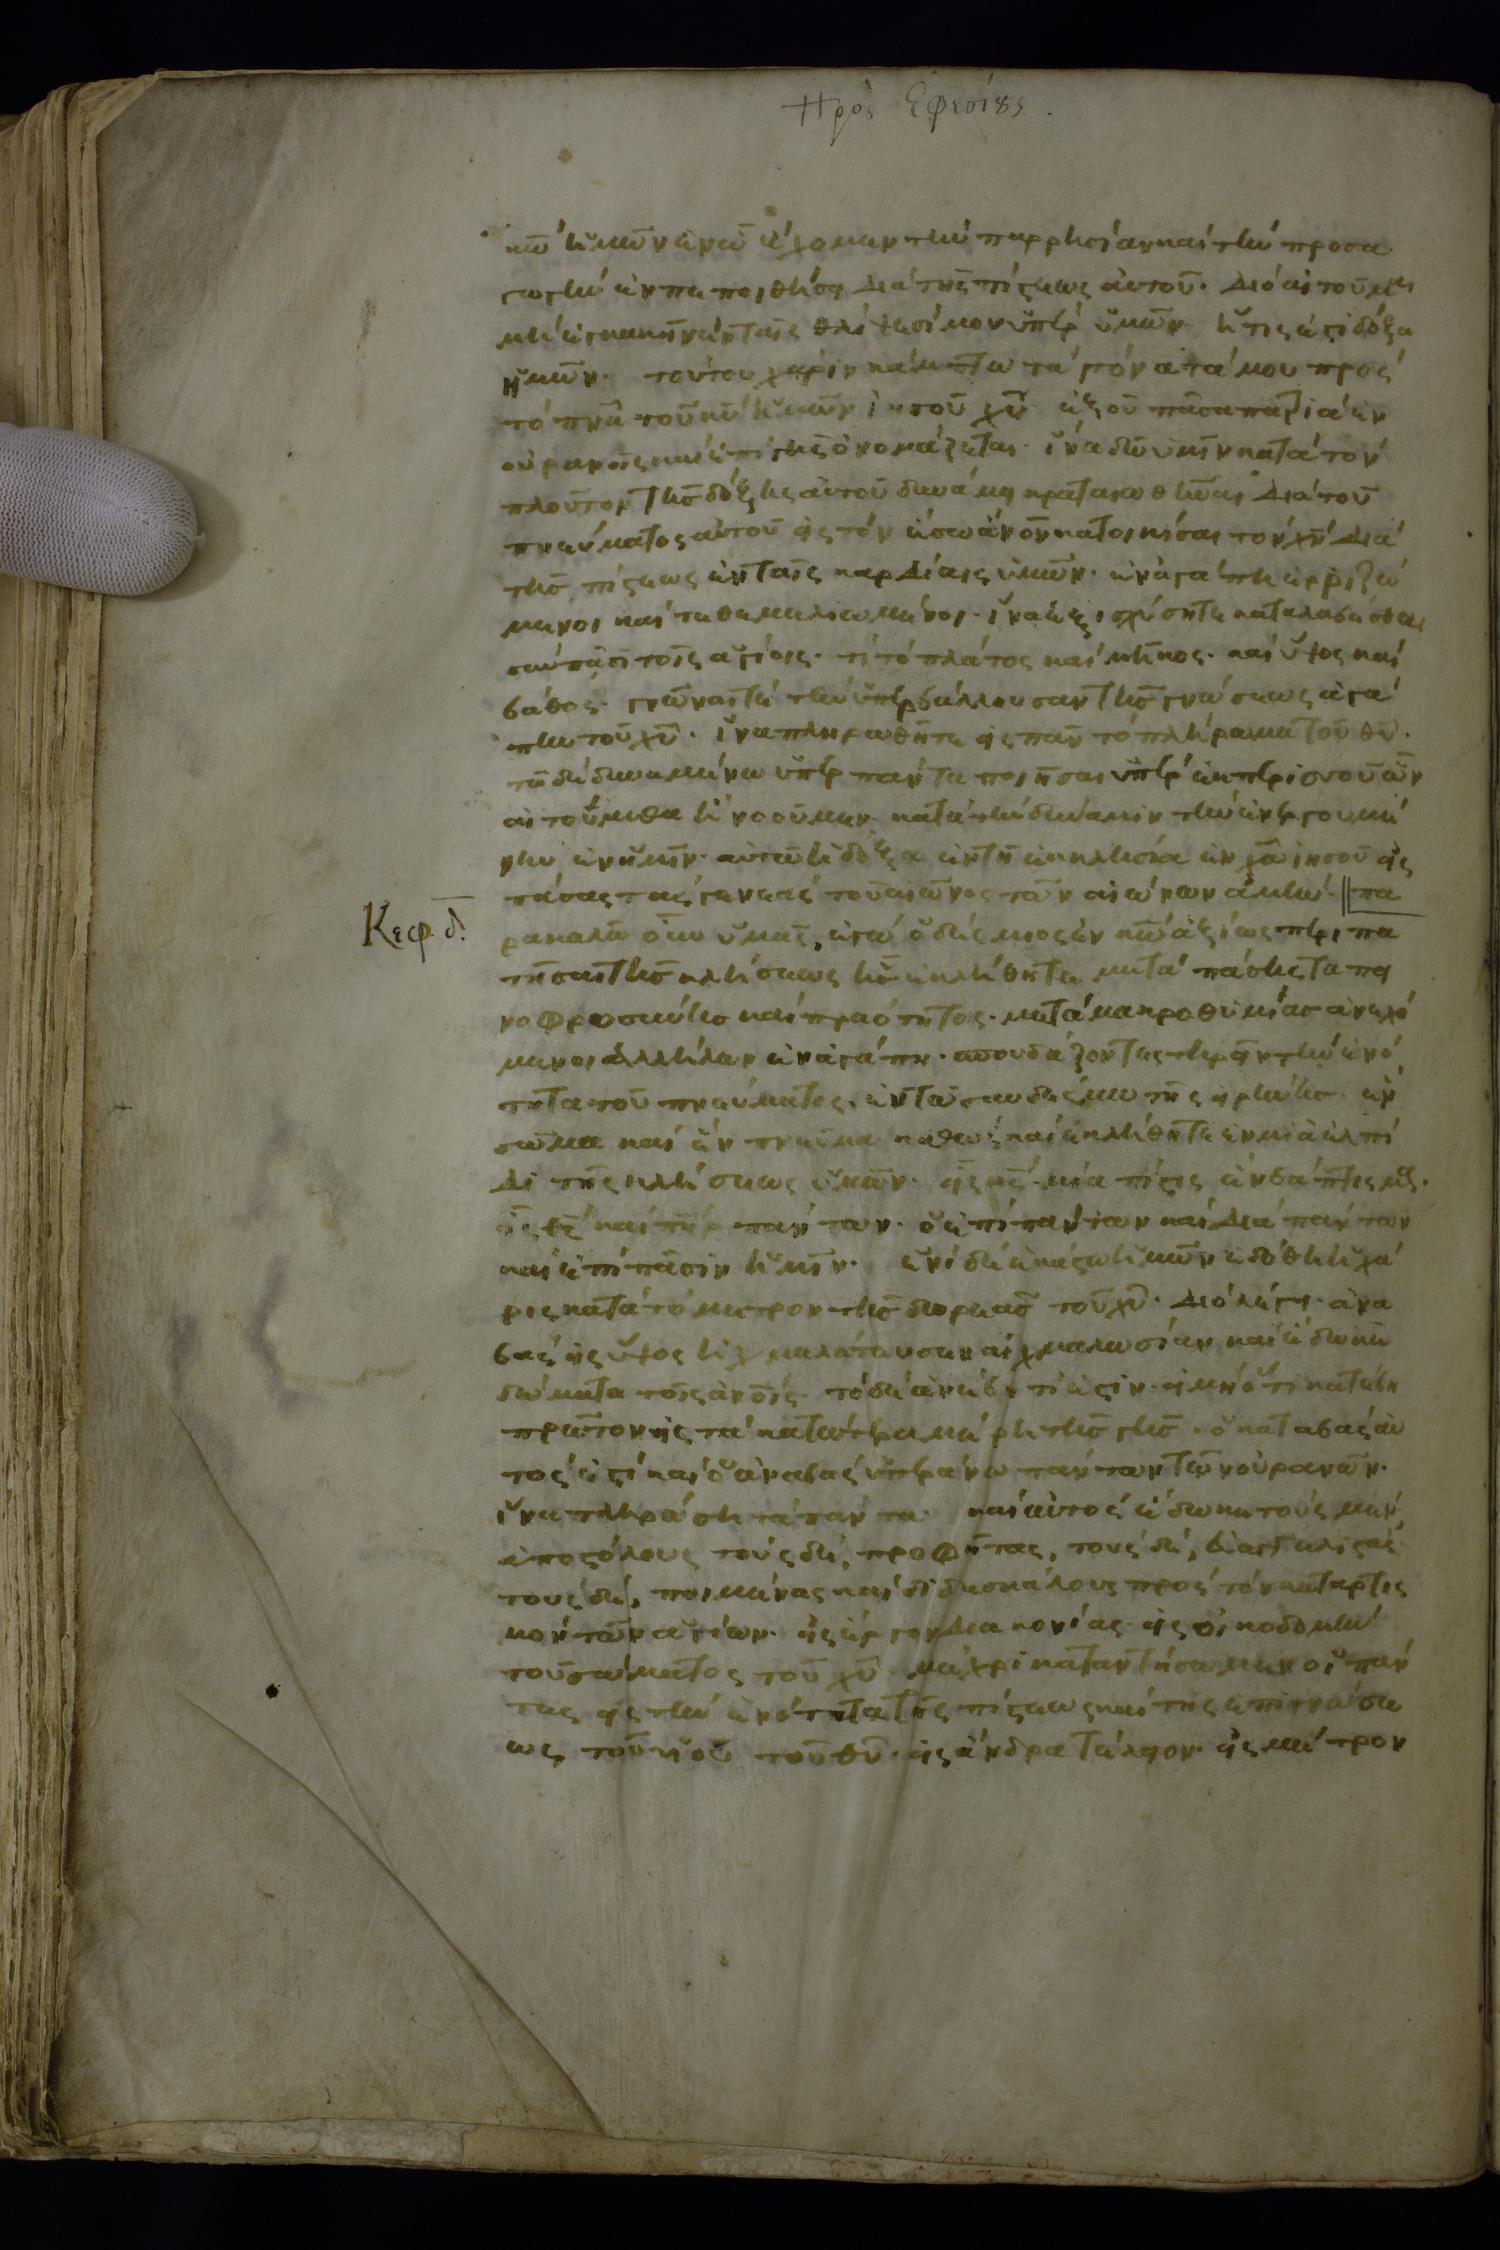 Πρὸς Ἐφεσίȣς.
κῶ ἡμῶν ἐν ὧ ἔχομεν τὴν παρρησίαν καὶ τὴν προσα
γωγὴν ἐν πεποιθήσει διὰ τῆς πίστεως αὐτοῦ· διὸ αἰτοῦμαι
μὴ ἐκκακεῖν ἐν ταῖς θλίψεσί μου ὑπὲρ ὑμῶν· ἥτις ἐστὶ δόξα
ὑμῶν· τούτου χάριν κάμπτω τὰ γόνατά μου πρὸς
τὸ πνα τοῦ κυ ἡμῶν ἰησοῦ χυ ἐξ οὗ πᾶσα πατριὰ ἐν
οὐρανοῖς καὶ ἐπὶ γῆς ὀνομάζεται· ἵνα δώη ὑμῖν κατὰ τὸν
πλοῦτον τῆς δόξης αὐτοῦ δυνάμει κραταιωθῆναι διὰ τοῦ
πνεύματος αὐτοῦ εἰς τὸν ἔσω ανον κατοικῆσαι τὸν χν διὰ
τῆς πίστεως ἐν ταῖς καρδίαις ὑμῶν· ἐν ἀγάπη ἐρριζω
μένοι καὶ τεθεμελιωμένοι· ἵνα ἐξισχύσητε καταλαβέσθαι
σὺν πᾶσι τοῖς ἁγίοις· τί τὸ πλάτος καὶ μῆκος· καὶ ὕψος καὶ
βάθος· γνῶναί τε τὴν ὑπερβάλλουσαν τῆς γνώσεως ἀγά
πην τοῦ χυ· ἵνα πληρωθῆτε εἰς πᾶν τὸ πλήρωμα τοῦ θυ·
τῶ δὲ δυναμένω ὑπὲρ πάντα ποιῆσαι ὑπὲρ ἐκ περισσοῦ ὧν
αἰτούμεθα ἢ νοοῦμεν· κατὰ τὴν δύναμιν τὴν ἐνεργουμέ
νην ἐν ἡμῖν· αὐτῶ ἡ δόξα ἐν τῆ ἐκκλησία ἐν χω ἰησοῦ εἰς
πάσας τὰς γενεὰς τοῦ αἰῶνος τῶν αἰώνων ἀμήν· πα
Κεφ. δ.
ρακαλῶ οὖν ὑμᾶς, ἐγὼ ὁ δέσμιος ἐν κω ἀξίως περιπα
τῆσαι τῆς κλήσεως ἧς ἐκλήθητε μετὰ πάσης ταπει
νοφροσύνης καὶ πραότητος· μετὰ μακροθυμίας ἀνεχό
μενοι ἀλλήλων ἐν ἀγάπη· σπουδάζοντες τηρεῖν τὴν ἑνό
τητα τοῦ πνεύματος· ἐν τῶ συνδέσμω τῆς εἰρήνης ἓν
σῶμα καὶ ἓν πνεῦμα καθὼς καὶ ἐκλήθητε ἐν μιᾶ ἐλπί
δι τῆς κλήσεως ὑμῶν· εἷς κς· μία πίστις ἓν βάπτισμα·
εἷς θς καὶ πηρ πάντων· ὁ ἐπὶ πάντων καὶ διὰ πάντων
καὶ ἐπὶ πᾶσιν ἡμῖν· ἑνὶ δὲ ἑκάστω ἡμῶν ἐδόθη ἡ χά
ρις κατὰ τὸ μέτρον τῆς δωρεᾶς τοῦ χυ· διὸ λέγει· ἀνα
βὰς εἰς ὕψος ἠχμαλώτευσεν αἰχμαλωσίαν καὶ ἔδωκε
δώματα τοῖς ανοις· τὸ δὲ ἀνέβη τί ἐστιν· εἰ μὴ ὅτι κατέβη
πρῶτον εἰς τὰ κατώτερα μέρη τῆς γῆς· ὁ καταβὰς αὐ
τός ἐστι καὶ ὁ ἀναβὰς ὑπεράνω πάντων τῶν οὐρανῶν·
ἵνα πληρώση τὰ πάντα· καὶ αὐτὸς ἔδωκε τοὺς μὲν,
ἀποστόλους τοὺς δὲ, προφήτας, τοὺς δὲ, εὐαγγελιστὰς·
τοὺς δὲ, ποιμένας καὶ διδασκάλους πρὸς τὸν καταρτισ
μὸν τῶν ἁγίων· εἰς ἔργον διακονίας· εἰς οἰκοδομὴν
τοῦ σώματος τοῦ χυ· μέχρι καταντήσωμεν οἱ πάν
τες εἰς τὴν ἑνότητα τῆς πίστεως καὶ τῆς ἐπιγνώσε
ως τοῦ υἱοῦ τοῦ θυ· εἰς ἄνδρα τέλειον· εἰς μέτρον